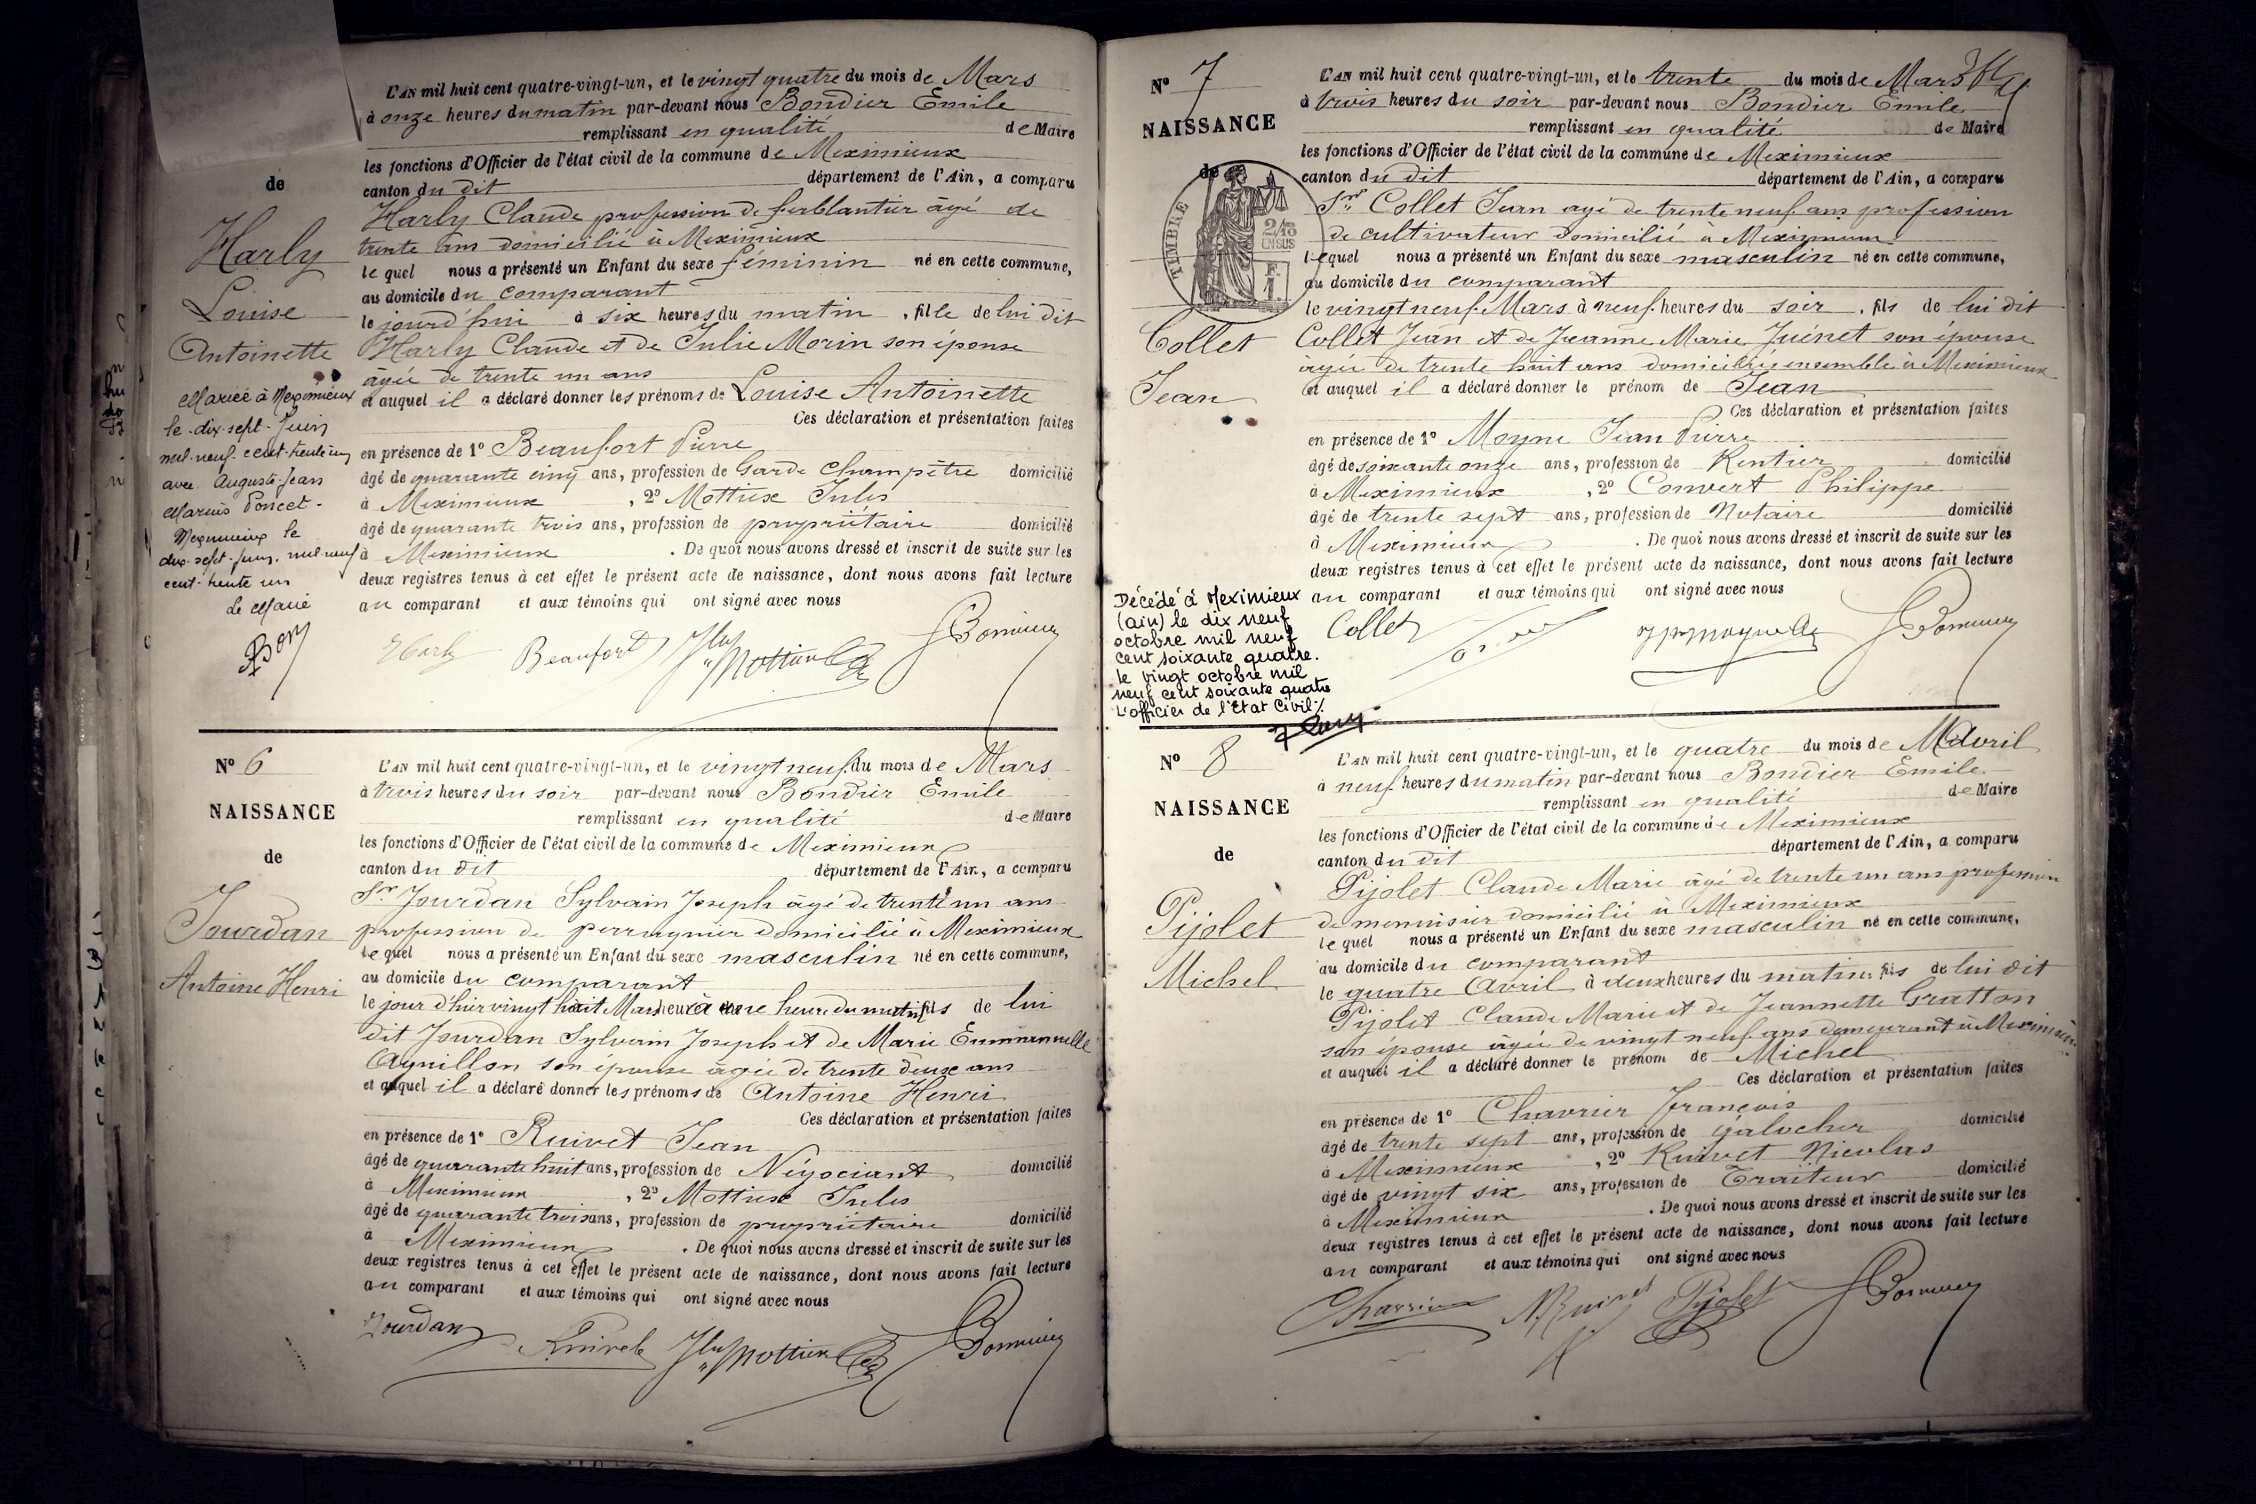 L'AN mil huit cent quatre-vingt-un, et le vingt quatre du mois de Mars
à onze heures du matin par-devant nous Bondier Emile
remplissant en qualité de Maire
les fonctions d'Officier de l'état civil de la commune de Meximieux
canton du dit département de l'Ain, a comparu
Harly Claude profession de ferblantier âgé de
trente ans domicilié à Meximieux
le quel nous a présenté un Enfant du sexe féminin né en cette commune,
au domicile du comparant
le jourd'hui à six heures du matin, fille de lui dit
Harly Claude et de Julie Morin son épouse
âgée de trente un ans
et auquel il a déclaré donner les prénoms de Louise Antoinette
Ces déclaration et présentation faites
en présence de 1º Beaufort Pierre
âgé de quarante cinq ans, profession de Garde Champêtre domicilié
à Meximieux, 2º Mottieux Jules
âgé de quarante trois ans, profession de propriétaire domicilié
à Meximieux. De quoi nous avons dressé et inscrit de suite sur les
deux registres tenus à cet effet le présent acte de naissance, dont nous avons fait lecture
au comparant et aux témoins qui ont signé avec nous
de
Harly
Louise
Antoinette
Mariée à Meximieux
le dix sept Juin
mil neuf cent trente un
avec Auguste Jean
Marius Poncet.
Meximieux le
dix-sept Juin, mil neuf
cent trente un
Le Maire
Harly Beaufort
Nº 6
NAISSANCE
de
Jourdan
Antoine Henri
L'AN mil huit cent quatre-vingt-un, et le vingt neuf du mois de Mars
à trois heures du soir par-devant nous Bondier Emile
remplissant en qualité de Maire
les fonctions d'Officier de l'état civil de la commune de Meximieux
canton du dit département de l'Ain, a comparu
Sr Jourdan Sylvain Joseph âgé de trente un ans
profession de perruquier domicilié à Meximieux
le quel nous a présenté un Enfant du sexe masculin né en cette commune,
au domicile du comparant
le jour d'hier vingt huit Mars à heure du matin fils de lui
dit Jourdan Sylvain Joseph et de Marie Emmannuelle
son épouse âgée de trente deux ans
et auquel il a déclaré donner les prénoms de Antoine Henri
Ces déclaration et présentation faites
en présence de 1º Ruivet Jean
âgé de quarante huit ans, profession de Négociant domicilié
à Meximieux, 2º Mottieux Jules
âgé de quarante trois ans, profession de propriétaire domicilié
à Meximieux. De quoi nous avons dressé et inscrit de suite sur les
deux registres tenus à cet effet le présent acte de naissance, dont nous avons fait lecture
au comparant et aux témoins qui ont signé avec nous
Jourdan
Nº 7
NAISSANCE
de
TIMBRE
2/10
EN SUS
Collet
Jean
L'AN mil huit cent quatre-vingt-un, et le trente du mois de Mars
à trois heures du soir par-devant nous Bondier Emile
remplissant en qualité de Maire
les fonctions d'Officier de l'état civil de la commune de Meximieux
canton du dit département de l'Ain, a comparu
Sr Collet Jean agé de trente neuf ans profession
de cultivateur domicilié à Meximieux
lequel nous a présenté un Enfant du sexe masculin né en cette commune,
au domicile du comparant
le vingt neuf Mars à neuf heures du soir, fils de lui dit
Collet Jean et de Jeanne Marie Juénet son épouse
âgée de trente huit ans domiciliés ensemble à Meximieux
et auquel il a déclaré donner le prénom de Jean
Ces déclaration et présentation faites
en présence de 1º Moyne Jean Pierre
âgé de soixante onze ans, profession de Rentier domicilié
à Meximieux, 2º Convert Philippe
âgé de trente sept ans, profession de Notaire domicilié
à Meximieux. De quoi nous avons dressé et inscrit de suite sur les
deux registres tenus à cet effet le présent acte de naissance, dont nous avons fait lecture
au comparant et aux témoins qui ont signé avec nous
Collet
Décédé à Meximieux
(ain) le dix neuf
octobre mil neuf
cent soixante quatre.
le vingt octobre mil
neuf cent soixante quatre
L'officier de l'Etat Civil
Nº 8
NAISSANCE
de
Pijolet
Michel
L'AN mil huit cent quatre-vingt-un, et le quatre du mois de Avril
à neuf heures du matin par-devant nous Bondier Emile
remplissant en qualité de Maire
les fonctions d'Officier de l'état civil de la commune de Meximieux
canton du dit département de l'Ain, a comparu
Pijolet Claude Marie âgé de trente un ans profession
de menuisier domicilié à Meximieux
le quel nous a présenté un Enfant du sexe masculin né en cette commune,
au domicile du comparant
le quatre Avril à deux heures du matin, fils de lui dit
Pijolet Claude Marie et de Jeannette Gratton
son épouse âgée de vingt neuf ans demeurant à Meximieux
et auquel il a déclaré donner le prénom de Michel
Ces déclaration et présentation faites
en présence de 1º Chavrier François
âgé de trente sept ans, profession de galocher domicilié
à Meximieux, 2º Ruivet Nicolas
âgé de vingt six ans, profession de Traiteur domicilié
à Meximieux. De quoi nous avons dressé et inscrit de suite sur les
deux registres tenus à cet effet le présent acte de naissance, dont nous avons fait lecture
au comparant et aux témoins qui ont signé avec nous
N. Ruivet Pijolet